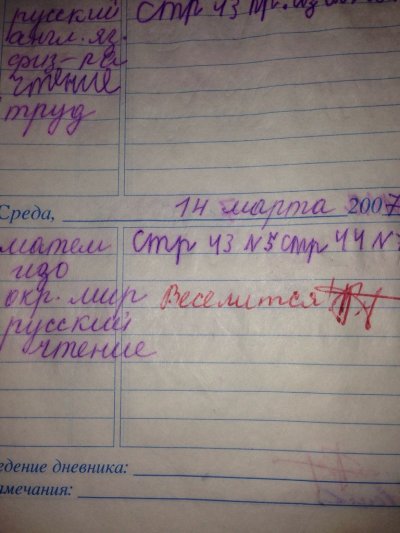 русский Стр 43
англ. яз.
физ-ра
чтение
труд
Среда, 14 марта 2007
матем Стр 43 N5 стр 44 N
изо
окр. мир Веселится!
русский
чтение
едение дневника:
амечания: